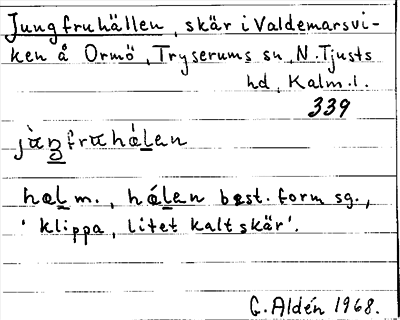 Jungfruhällen, skär i Valdemarsvi-
ken å Ormö, Tryserums sn, N. Tjusts
hd, Kalm.l.
339
hæl m., hælen best. form sg.,
'klippa, litet kalt skär'.
G. Aldén 1968.